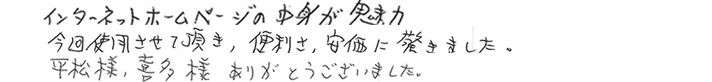 インターネットホームページの中身が魅力
今回使用させて頂き、便利さ、安価に驚きました。
平松様、喜多様 ありがとうございました。